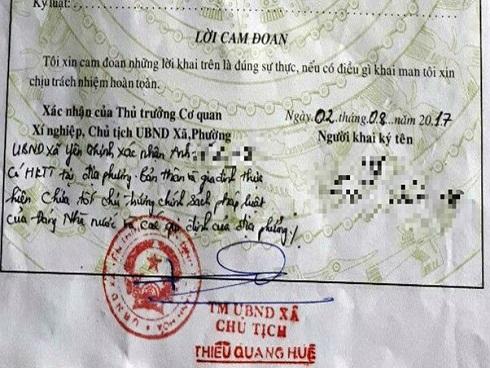 Kỷ luật:
LỜI CAM ĐOAN
Tôi xin cam đoan những lời khai trên là đúng sự thực, nếu có điều gì khai man tôi xin
chịu trách nhiệm hoàn toàn.
Xác nhận của Thủ trưởng Cơ quan
Xí nghiệp, Chủ tịch UBND Xã,Phường
Ngày 02 tháng 08 năm 2017
Người khai ký tên
UBND xã Yên Chính xác nhận Anh:
Có HKTT tại địa phương. Bản thân và gia đình thực
hiện chưa tốt chủ trương chính sách pháp luật
của Đảng Nhà nước và các quy định của địa phương!
TM UBND XÃ
CHỦ TỊCH
THIỀU QUANG HUÊ